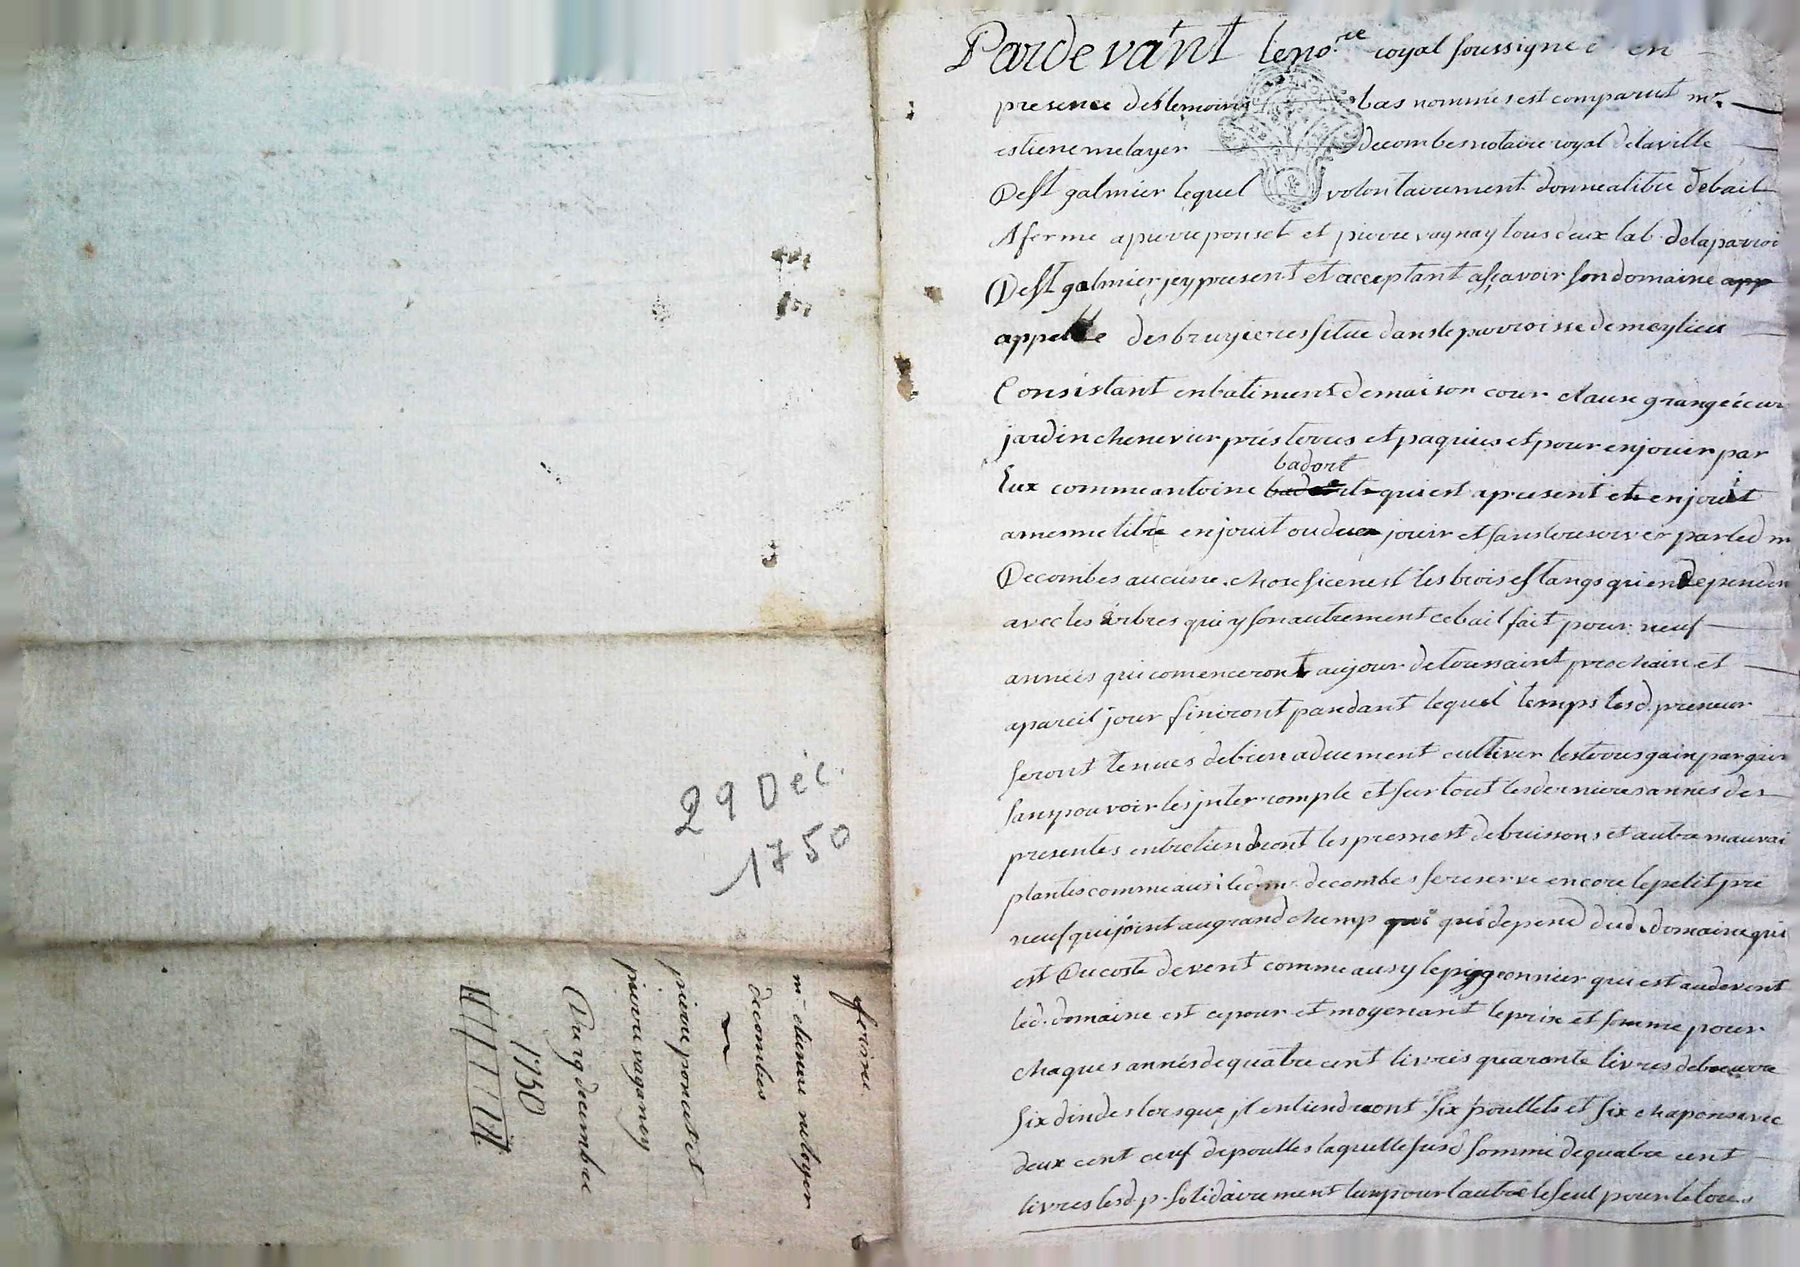 29 Déc.
1750
ferme
mr etienne
decombes
pierre poncet et
pierre vaganey
Du 29 decembre
1750
Pardevant le no.re royal soussigné en
presence des temoins bas nommés est comparut mr.
estiene melayer decombes notaire royal de la ville
De st galmier lequel volontairement donne a titre de bail
A ferme a pierre ponset et pierre vaynay tous deux lab. de la parroi
De st galmier jcy present et acceptant asçavoir son domaine app
appellé des bruyieres situé dans le parroisse de meylieu
Consistant en batiment de maison cour clause grange écur
jardin chenevier prés terres et paquiers et pour en jouir par
badort
Eux comme antoine qui est a present et en jouit
a mesme titre en jouit ou du jouir et sans reserver par led m
Decombes aucune chose si ce nest les bois estangs qui en dependen
avec les arbres qui y son autrement ce bail fait pour neuf
années qui comenceront au jour de toussaint prochain et
a pareil jour finiront pandant lequel temps lesd. preneur
seront tenues de bien a duement cultiver les terres gain par gain
sans pouvoir les interrompte et sur tout les dernieres annés des
presentes entretiendront les pres nest de buissons et autre mauvai
plantes comme ausi led. mr. decombes se reserve encore le petit pré
neuf qui joint au grand champ qui qui depend dud. domaine qui
est Du costé de vent comme ausy le piggeonnier qui est audevent
led. domaine est ce pour et moyenant le prix et somme pour
chaques annés de quatre cent livres quarante livres de beurre
six dindes lorsque jl en tiendront six poullets et six chapons avec
deux cent oeuf de poulles laquelle susd somme de quatre cent
livres lesd. p. solidairement lun pour lautre le seul pour le tout